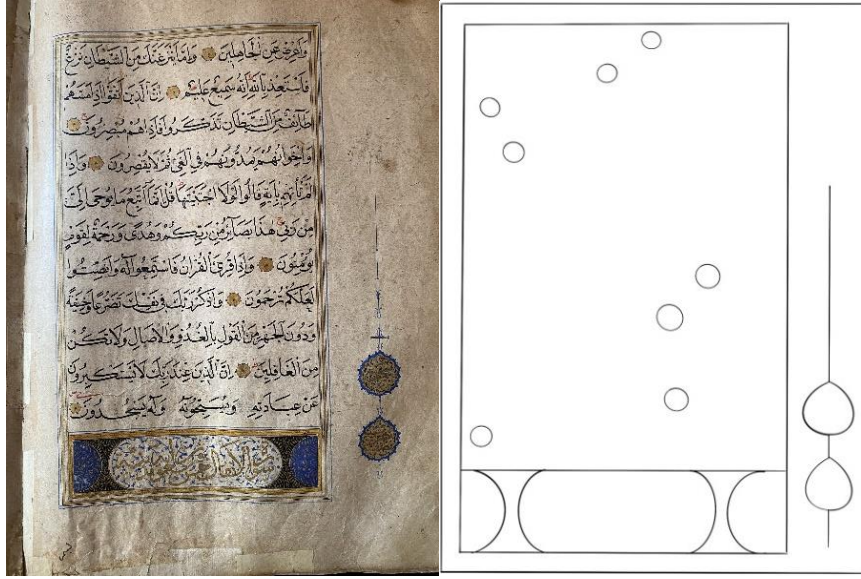 وَأَعْرِضْ عَنِ الْجَاهِلِينَ وَإِمَّا يَنْزَغَنَّكَ مِنَ الشَّيْطَانِ نَزْغٌ
فَاسْتَعِذْ بِاللَّهِ إِنَّهُ سَمِيعٌ عَلِيمٌ إِنَّ الَّذِينَ اتَّقَوْا إِذَا مَسَّهُمْ
طَائِفٌ مِنَ الشَّيْطَانِ تَذَكَّرُوا فَإِذَا هُمْ مُبْصِرُونَ
وَإِخْوَانُهُمْ يَمُدُّونَهُمْ فِي الْغَيِّ ثُمَّ لَا يُقْصِرُونَ وَإِذَا
لَمْ تَأْتِهِمْ بِآيَةٍ قَالُوا لَوْلَا اجْتَبَيْتَهَا قُلْ إِنَّمَا أَتَّبِعُ مَا يُوحَى إِلَيَّ
مِنْ رَبِّي هَذَا بَصَائِرُ مِنْ رَبِّكُمْ وَهُدًى وَرَحْمَةٌ لِقَوْمٍ
يُؤْمِنُونَ وَإِذَا قُرِئَ الْقُرْآنُ فَاسْتَمِعُوا لَهُ وَأَنْصِتُوا
لَعَلَّكُمْ تُرْحَمُونَ وَاذْكُرْ رَبَّكَ فِي نَفْسِكَ تَضَرُّعًا وَخِيفَةً
وَدُونَ الْجَهْرِ مِنَ الْقَوْلِ بِالْغُدُوِّ وَالْآصَالِ وَلَا تَكُنْ
مِنَ الْغَافِلِينَ إِنَّ الَّذِينَ عِنْدَ رَبِّكَ لَا يَسْتَكْبِرُونَ
عَنْ عِبَادَتِهِ وَيُسَبِّحُونَهُ وَلَهُ يَسْجُدُونَ
سورة الأنفال